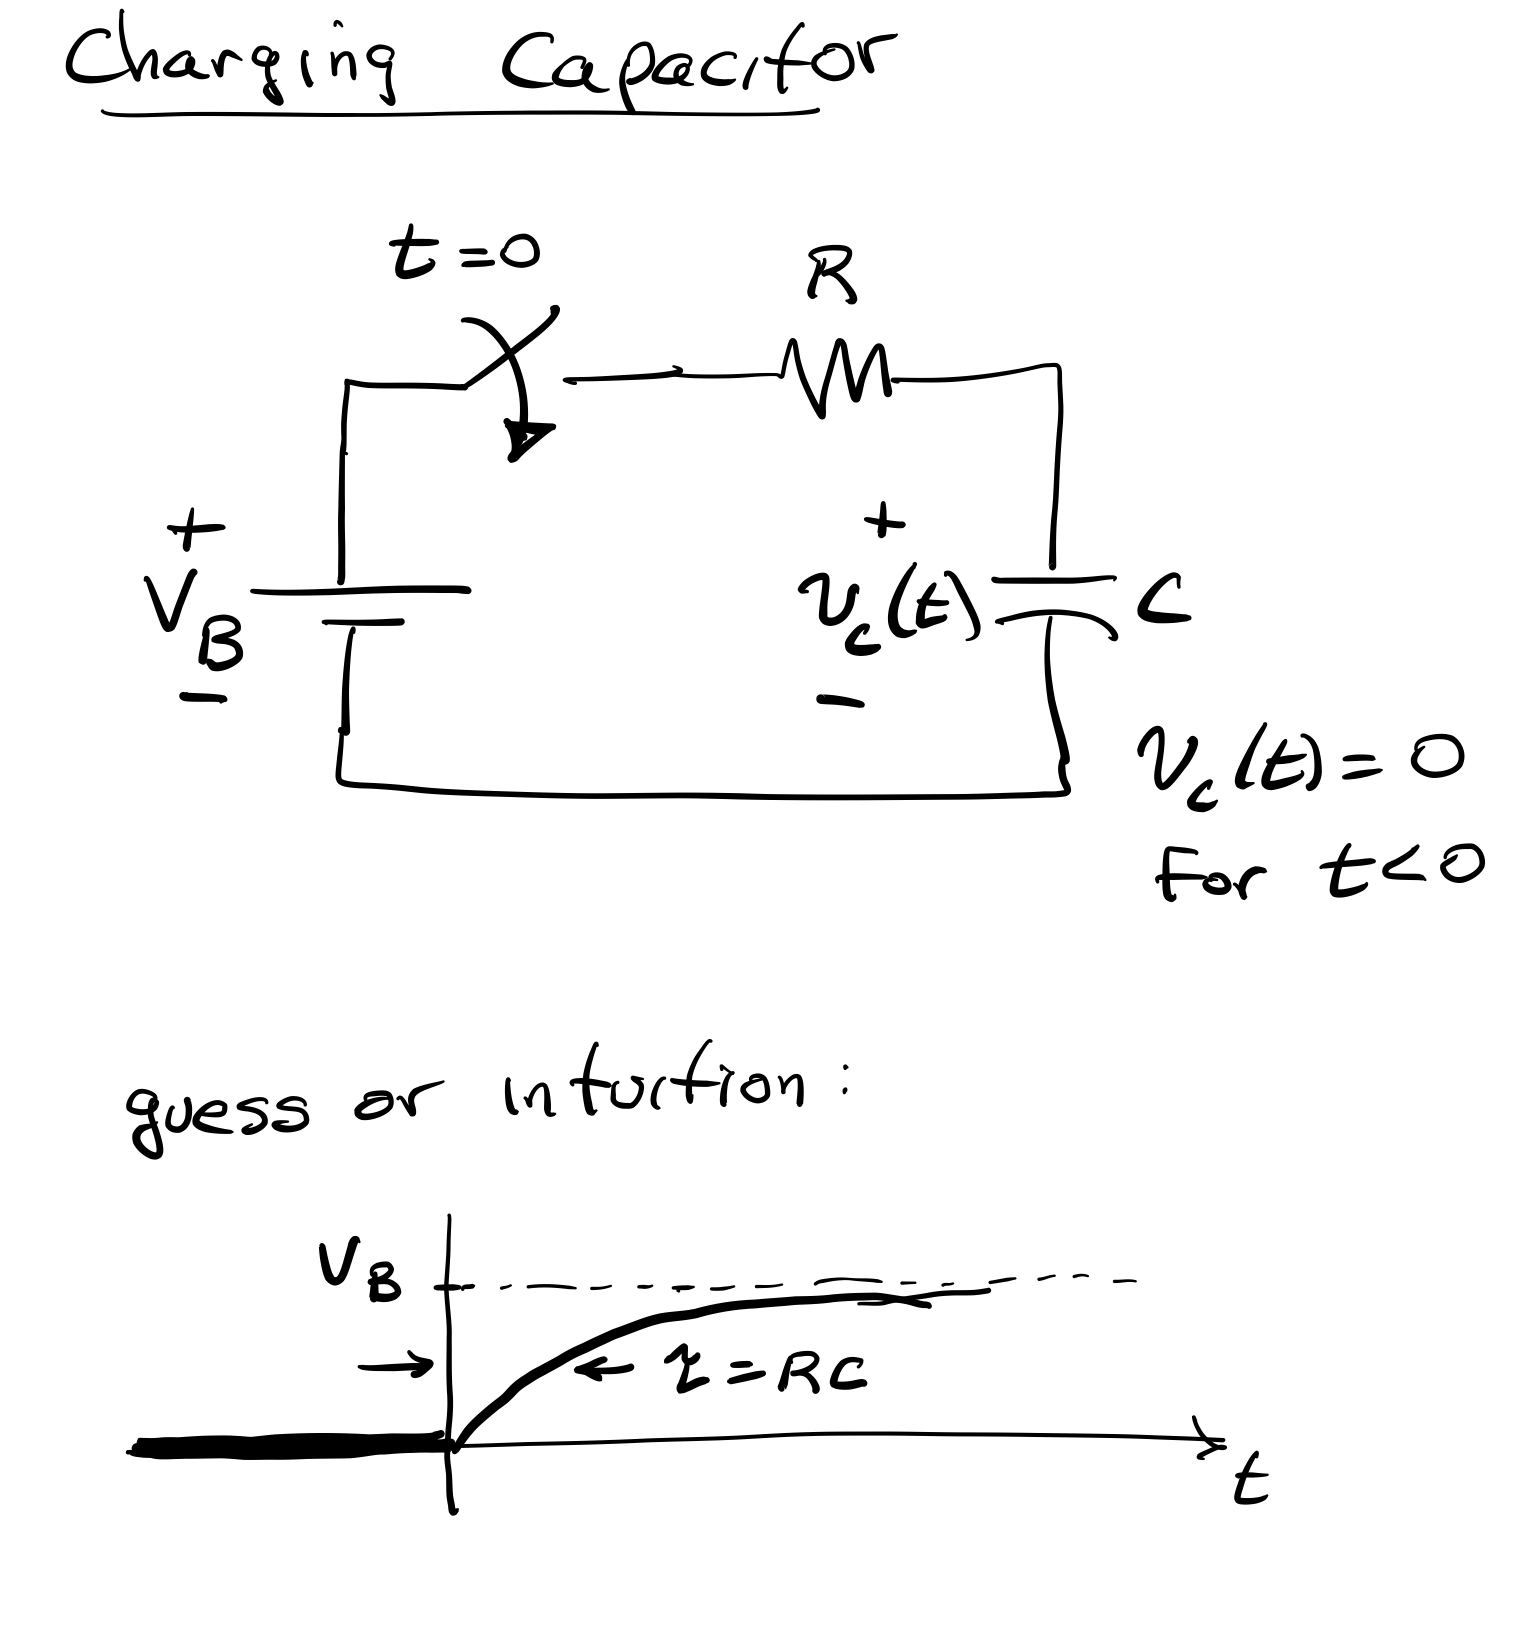 Charging Capacitor
t=0
R
+
V_B
−
+
v_c(t)
−
C
v_c(t)=0
For t<0
guess or intuition:
V_B
τ=RC
t